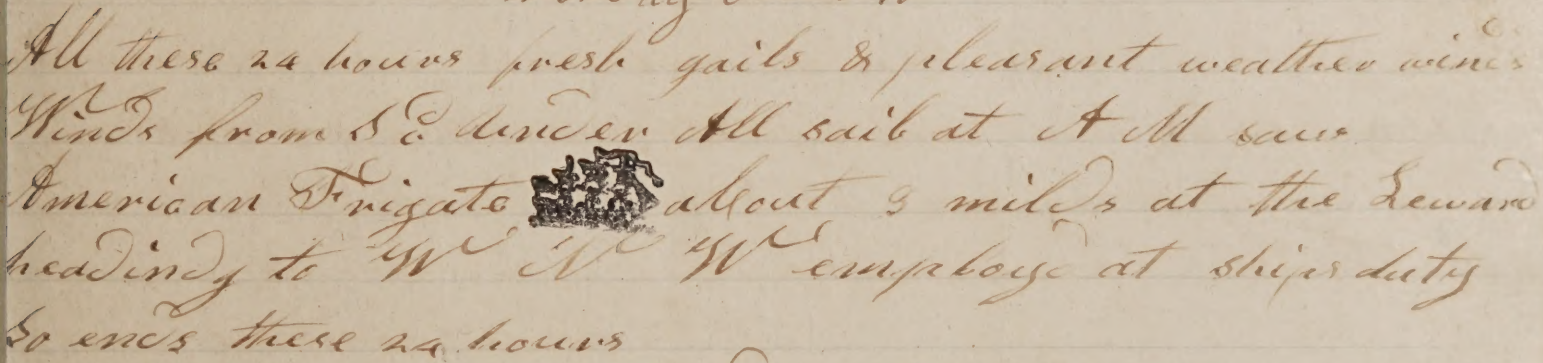 All these 24 hours fresh gails & pleasant weather winds
Winds from S E under All sail at A M saw
American Frigate about 3 milds at the Leward
heading to W N W employd at ships duty
So ends these 24 hours